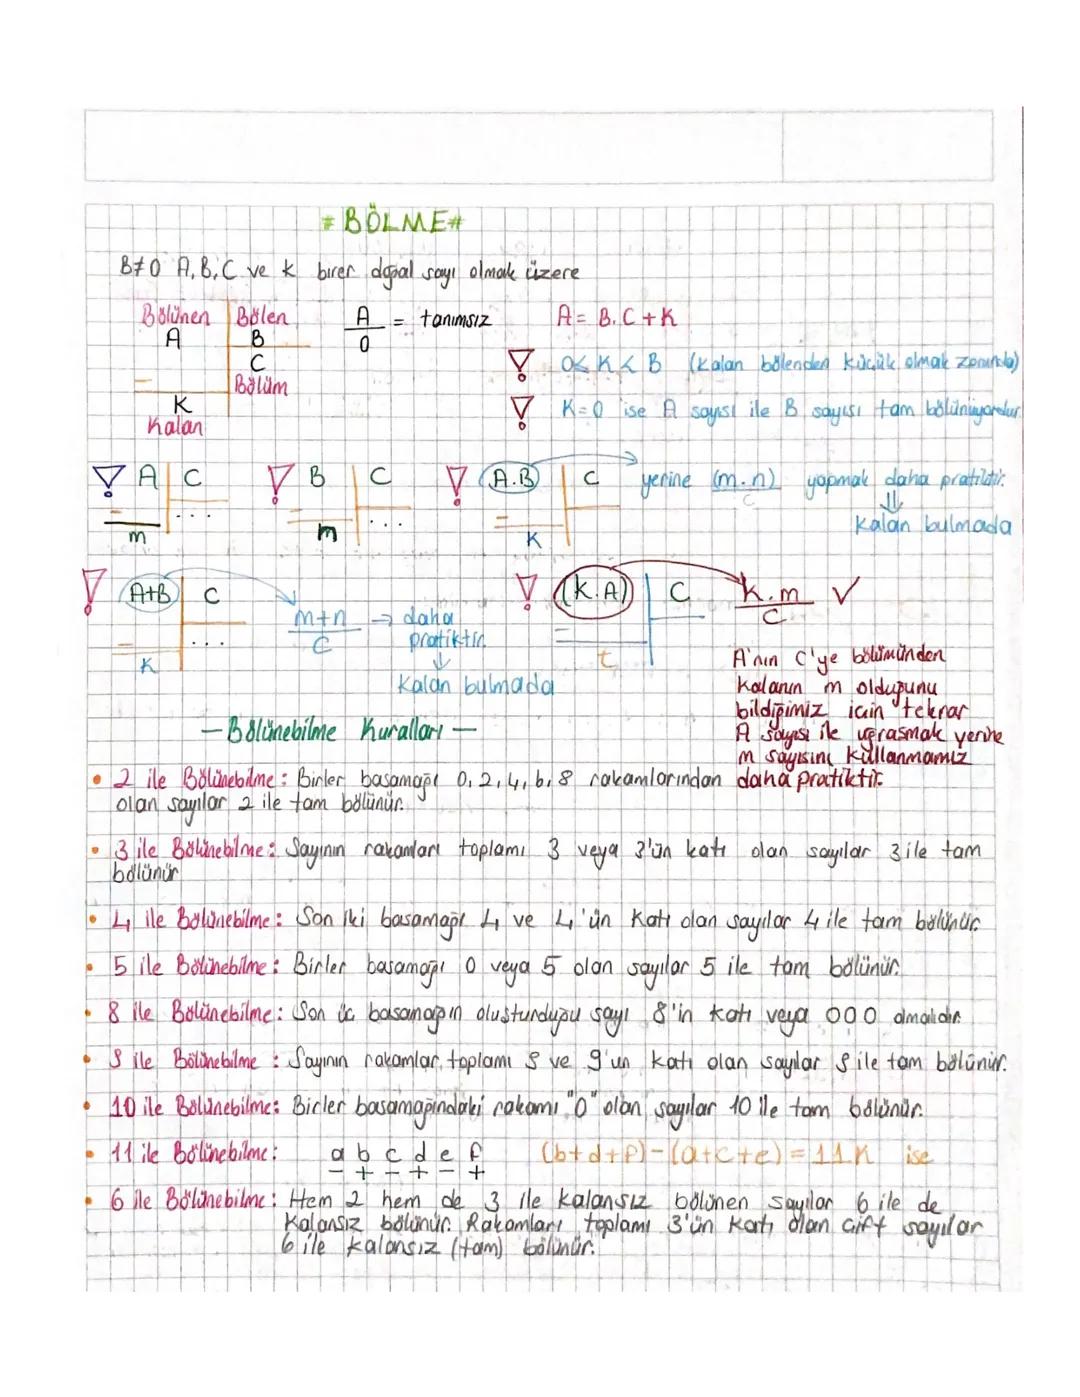 # BÖLME #
B≠0 A, B, C ve K birer doğal sayı olmak üzere
Bölünen Bölen
A B
C
Bölüm
K
Kalan
A/0 = tanımsız
A = B.C + K
! 0≤ K < B (Kalan bölenden küçük olmak zorunda)
! K=0 ise A sayısı ile B sayısı tam bölünüyordur.
! A C
...
m
! B C
...
m
! (A.B) C
K
yerine (m.n)/C yapmak daha pratiktir.
⇓
Kalan bulmada
! A+B C
...
K
m+n/C → daha
pratiktir.
↓
Kalan bulmada
! (K.A) C
t
K.m/C ✓
A'nın C'ye bölümünden
Kalanın m olduğunu
bildiğimiz için tekrar
A sayısı ile uğraşmak yerine
m sayısını kullanmamız
daha pratiktir.
— Bölünebilme Kuralları —
• 2 ile Bölünebilme: Birler basamağı 0, 2, 4, 6, 8 rakamlarından
olan sayılar 2 ile tam bölünür.
• 3 ile Bölünebilme: Sayının rakamları toplamı 3 veya 3'ün katı olan sayılar 3 ile tam
bölünür
• 4 ile Bölünebilme: Son iki basamağı 4 ve 4'ün Katı olan sayılar 4 ile tam bölünür.
• 5 ile Bölünebilme: Birler basamağı 0 veya 5 olan sayılar 5 ile tam bölünür.
• 8 ile Bölünebilme: Son üç basamağın oluşturduğu sayı 8'in katı veya 000 olmalıdır.
• 9 ile Bölünebilme: Sayının rakamlar toplamı 9 ve 9'un Katı olan sayılar 9 ile tam bölünür.
• 10 ile Bölünebilme: Birler basamağındaki rakamı "0" olan sayılar 10 ile tam bölünür.
• 11 ile Bölünebilme: a b c d e f (b+d+f)-(a+c+e) = 11.K ise
− + − + − +
• 6 ile Bölünebilme: Hem 2 hem de 3 ile Kalansız bölünen sayılar 6 ile de
Kalansız bölünür. Rakamları toplamı 3'ün Katı olan çift sayılar
6 ile kalansız (tam) bölünür.